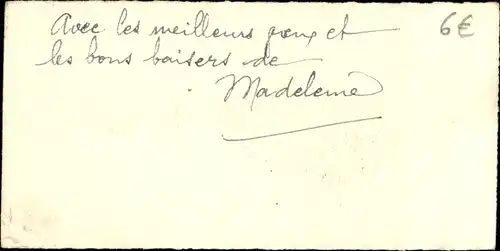 Avec les meilleurs vœux et
les bons baisers de
Madeleine
6€